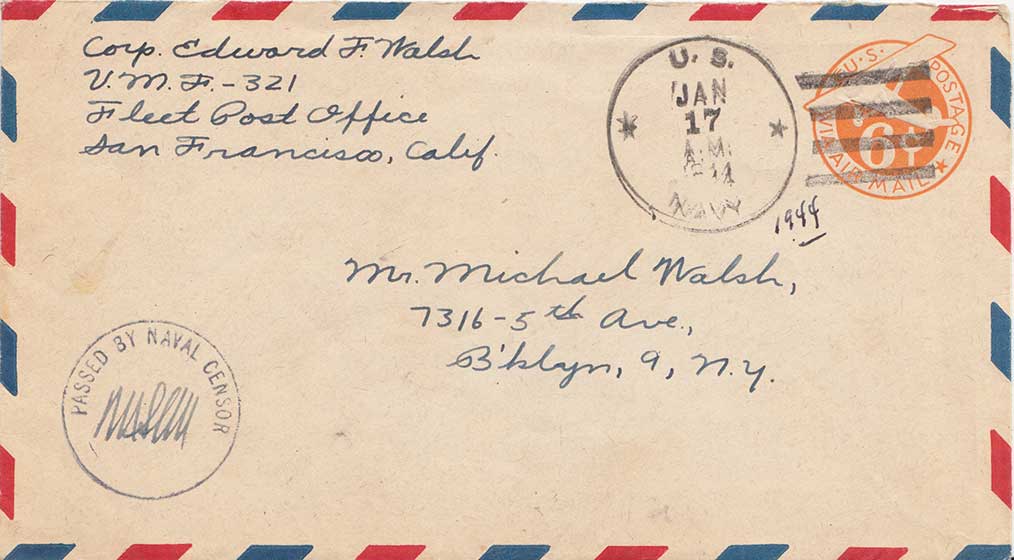 Corp. Edward F. Walsh
V.M.F.-321
Fleet Post Office
San Francisco, Calif.
U. S.
JAN
17
A.M.
NAVY
U.S. POSTAGE
6¢
VIA AIR MAIL
1944
Mr. Michael Walsh,
7316-5th Ave.,
B'klyn, 9, N.Y.
PASSED BY NAVAL CENSOR